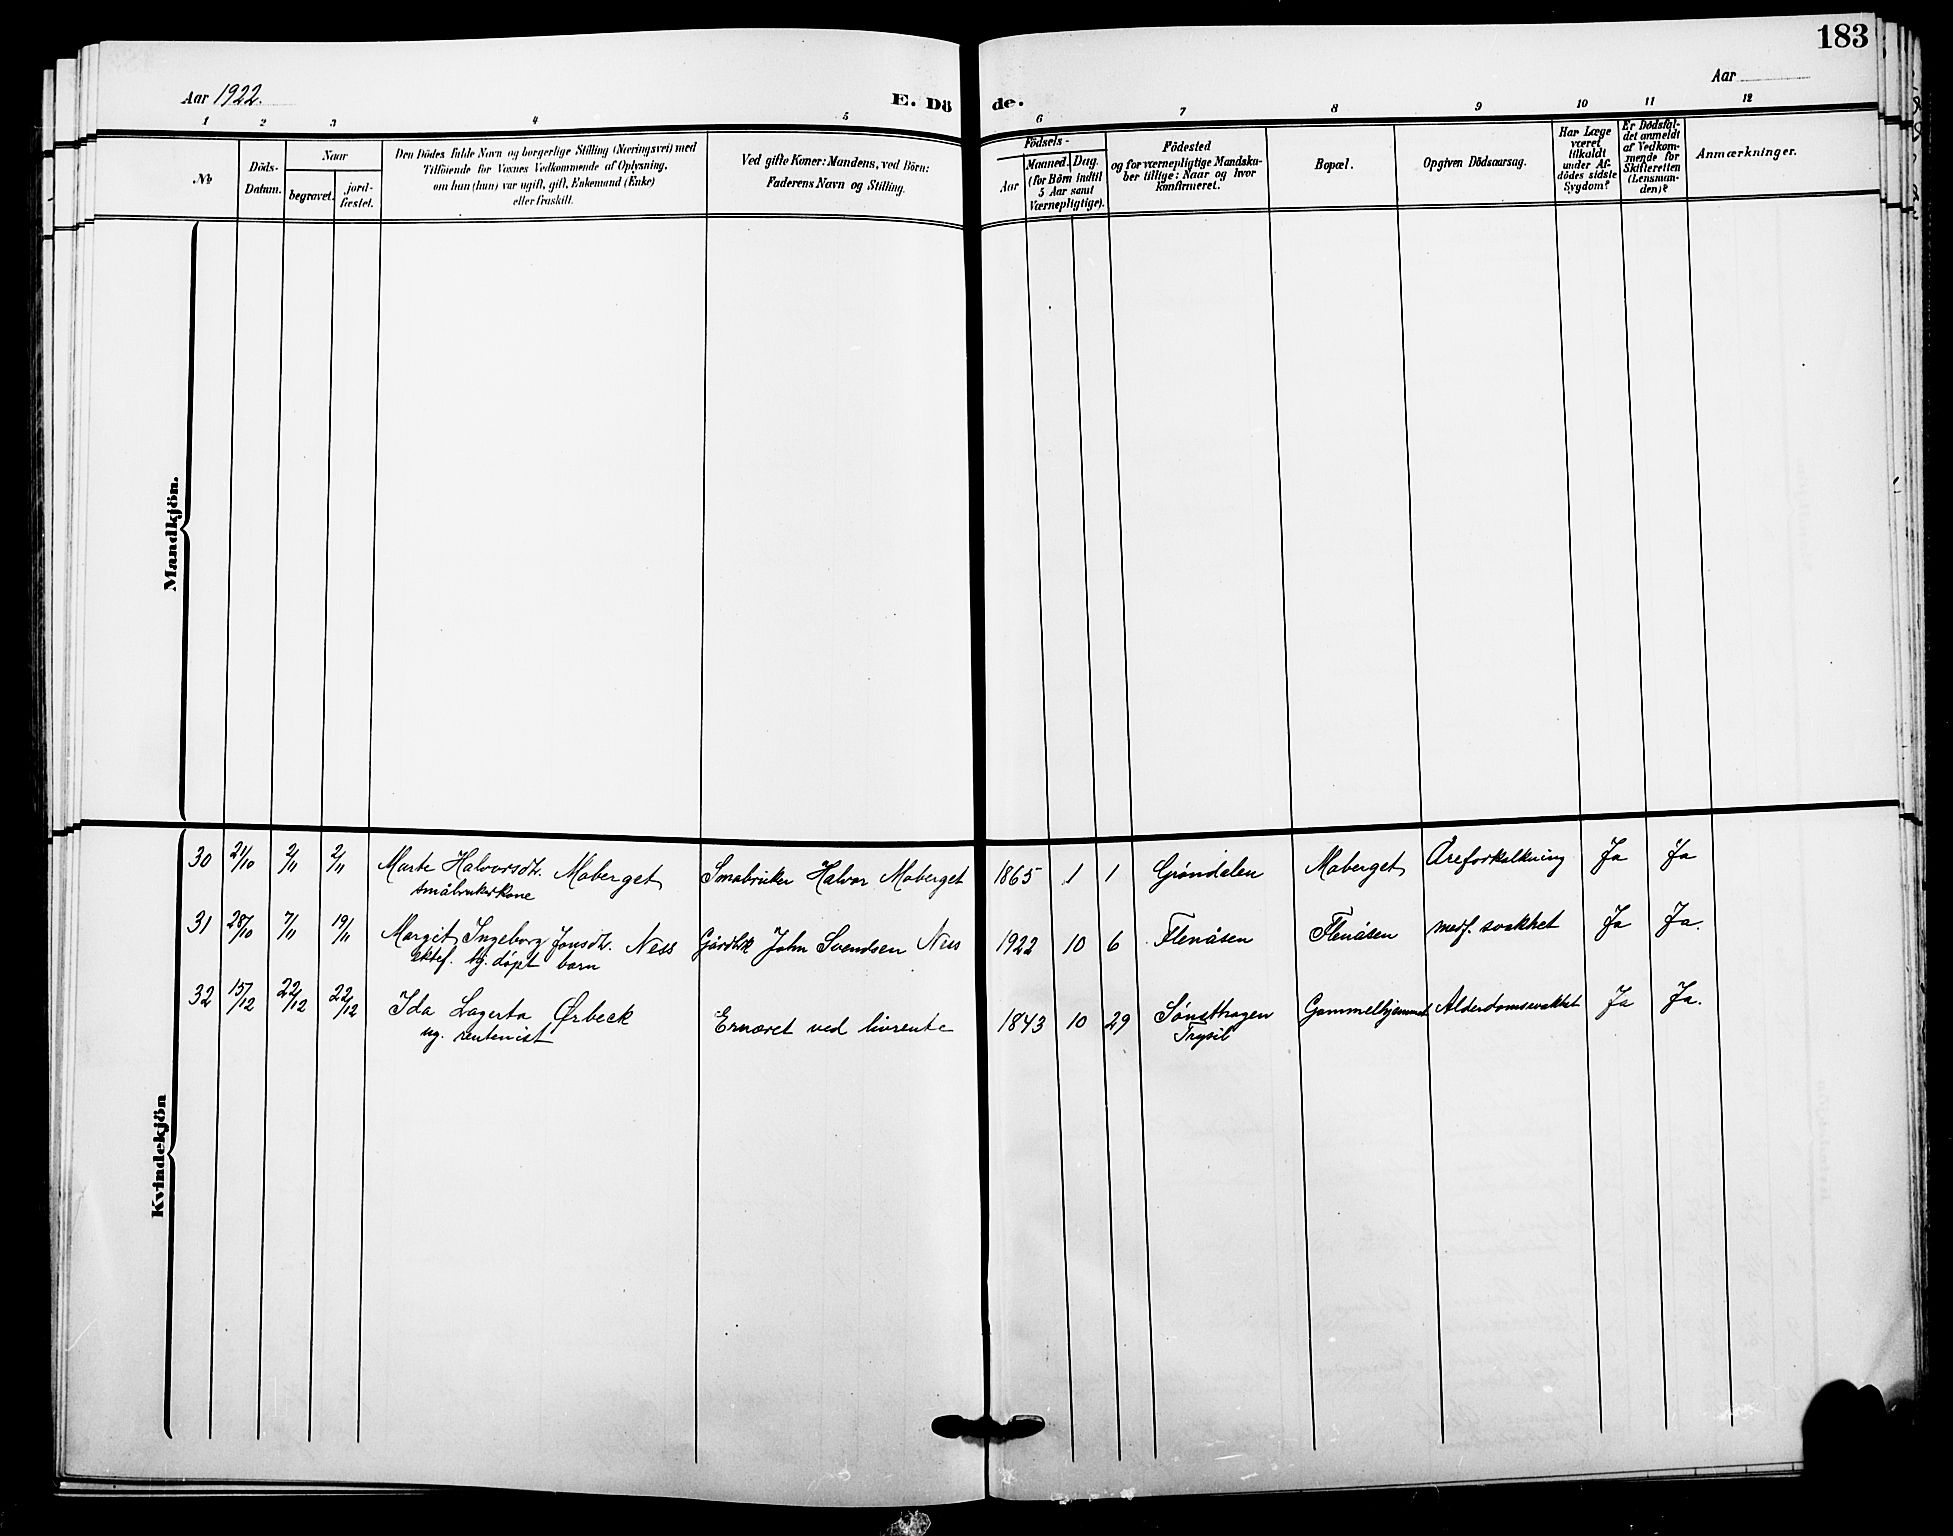 183
Aar 1922.
E. Dö de.
Aar
1 2 3 4 5 6 7 8 9 10 11 12
№
Döds-
Datum.
Naar
begravet.
jord-
fæstet.
Den Dödes fulde Navn og borgerlige Stilling (Næringsvei) med
Tilföiende for Voxnes Vedkommende af Oplysning,
om han (hun) var ugift, gift, Enkemand (Enke)
eller fraskilt.
Ved gifte Koner: Mandens, ved Börn:
Faderens Navn og Stilling.
Födsels-
Aar
Maaned.
Dag.
(for Börn indtil
5 Aar samt
Værnepligtige).
Födested
og for værnepligtige Mandska-
ber tillige: Naar og hvor
konfirmeret.
Bopæl.
Opgiven Dödsaarsag.
Har Læge
været
tilkaldt
under Af-
dödes sidste
Sygdom?
Er Dödsfal-
det anmeldt
af Vedkom-
mende for
Skifteretten
(Lensman-
den)?
Anmærkninger.
Mandkjön.
Kvindekjön
30 21/10 2/11 2/11 Marte Halvorsdt. Moberget Småbruker Halvor Moberget 1865 1 1 Grøndalen Moberget Åreforkalkning Ja Ja
småbrukerkone
31 28/10 7/11 19/11 Margit Ingeborg Jonsdt. Ness Gårdbr John Svendsen Ness 1922 10 6 Flenåsen Flenåsen medf. svakhet Ja Ja.
ektef. hj. døpt barn
32 15/12 22/12 22/12 Ida Lagerta Ørbeck Ernæret ved livrente 1843 10 29 Sønsthagen Gammelhjemmet Alderdomssvakhet Ja Ja.
ug. rentenist Trysil